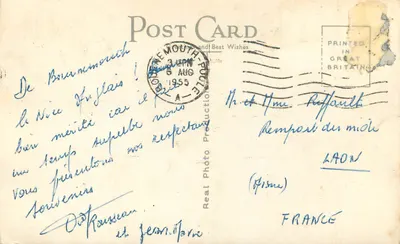 POST CARD
and Best Wishes
BOURNEMOUTH-POOLE
PM
8 AUG
1955
A
PRINTED
IN
GREAT
BRITAIN
De Bournemouth
le Nice Anglais!
bien mérité car il
un temps superbe nous
vous présentons nos respectueux
souvenirs
et Jean-Marie
Real Photo
Mr et Mme
Rempart du midi
LAON
(Aisne)
FRANCE